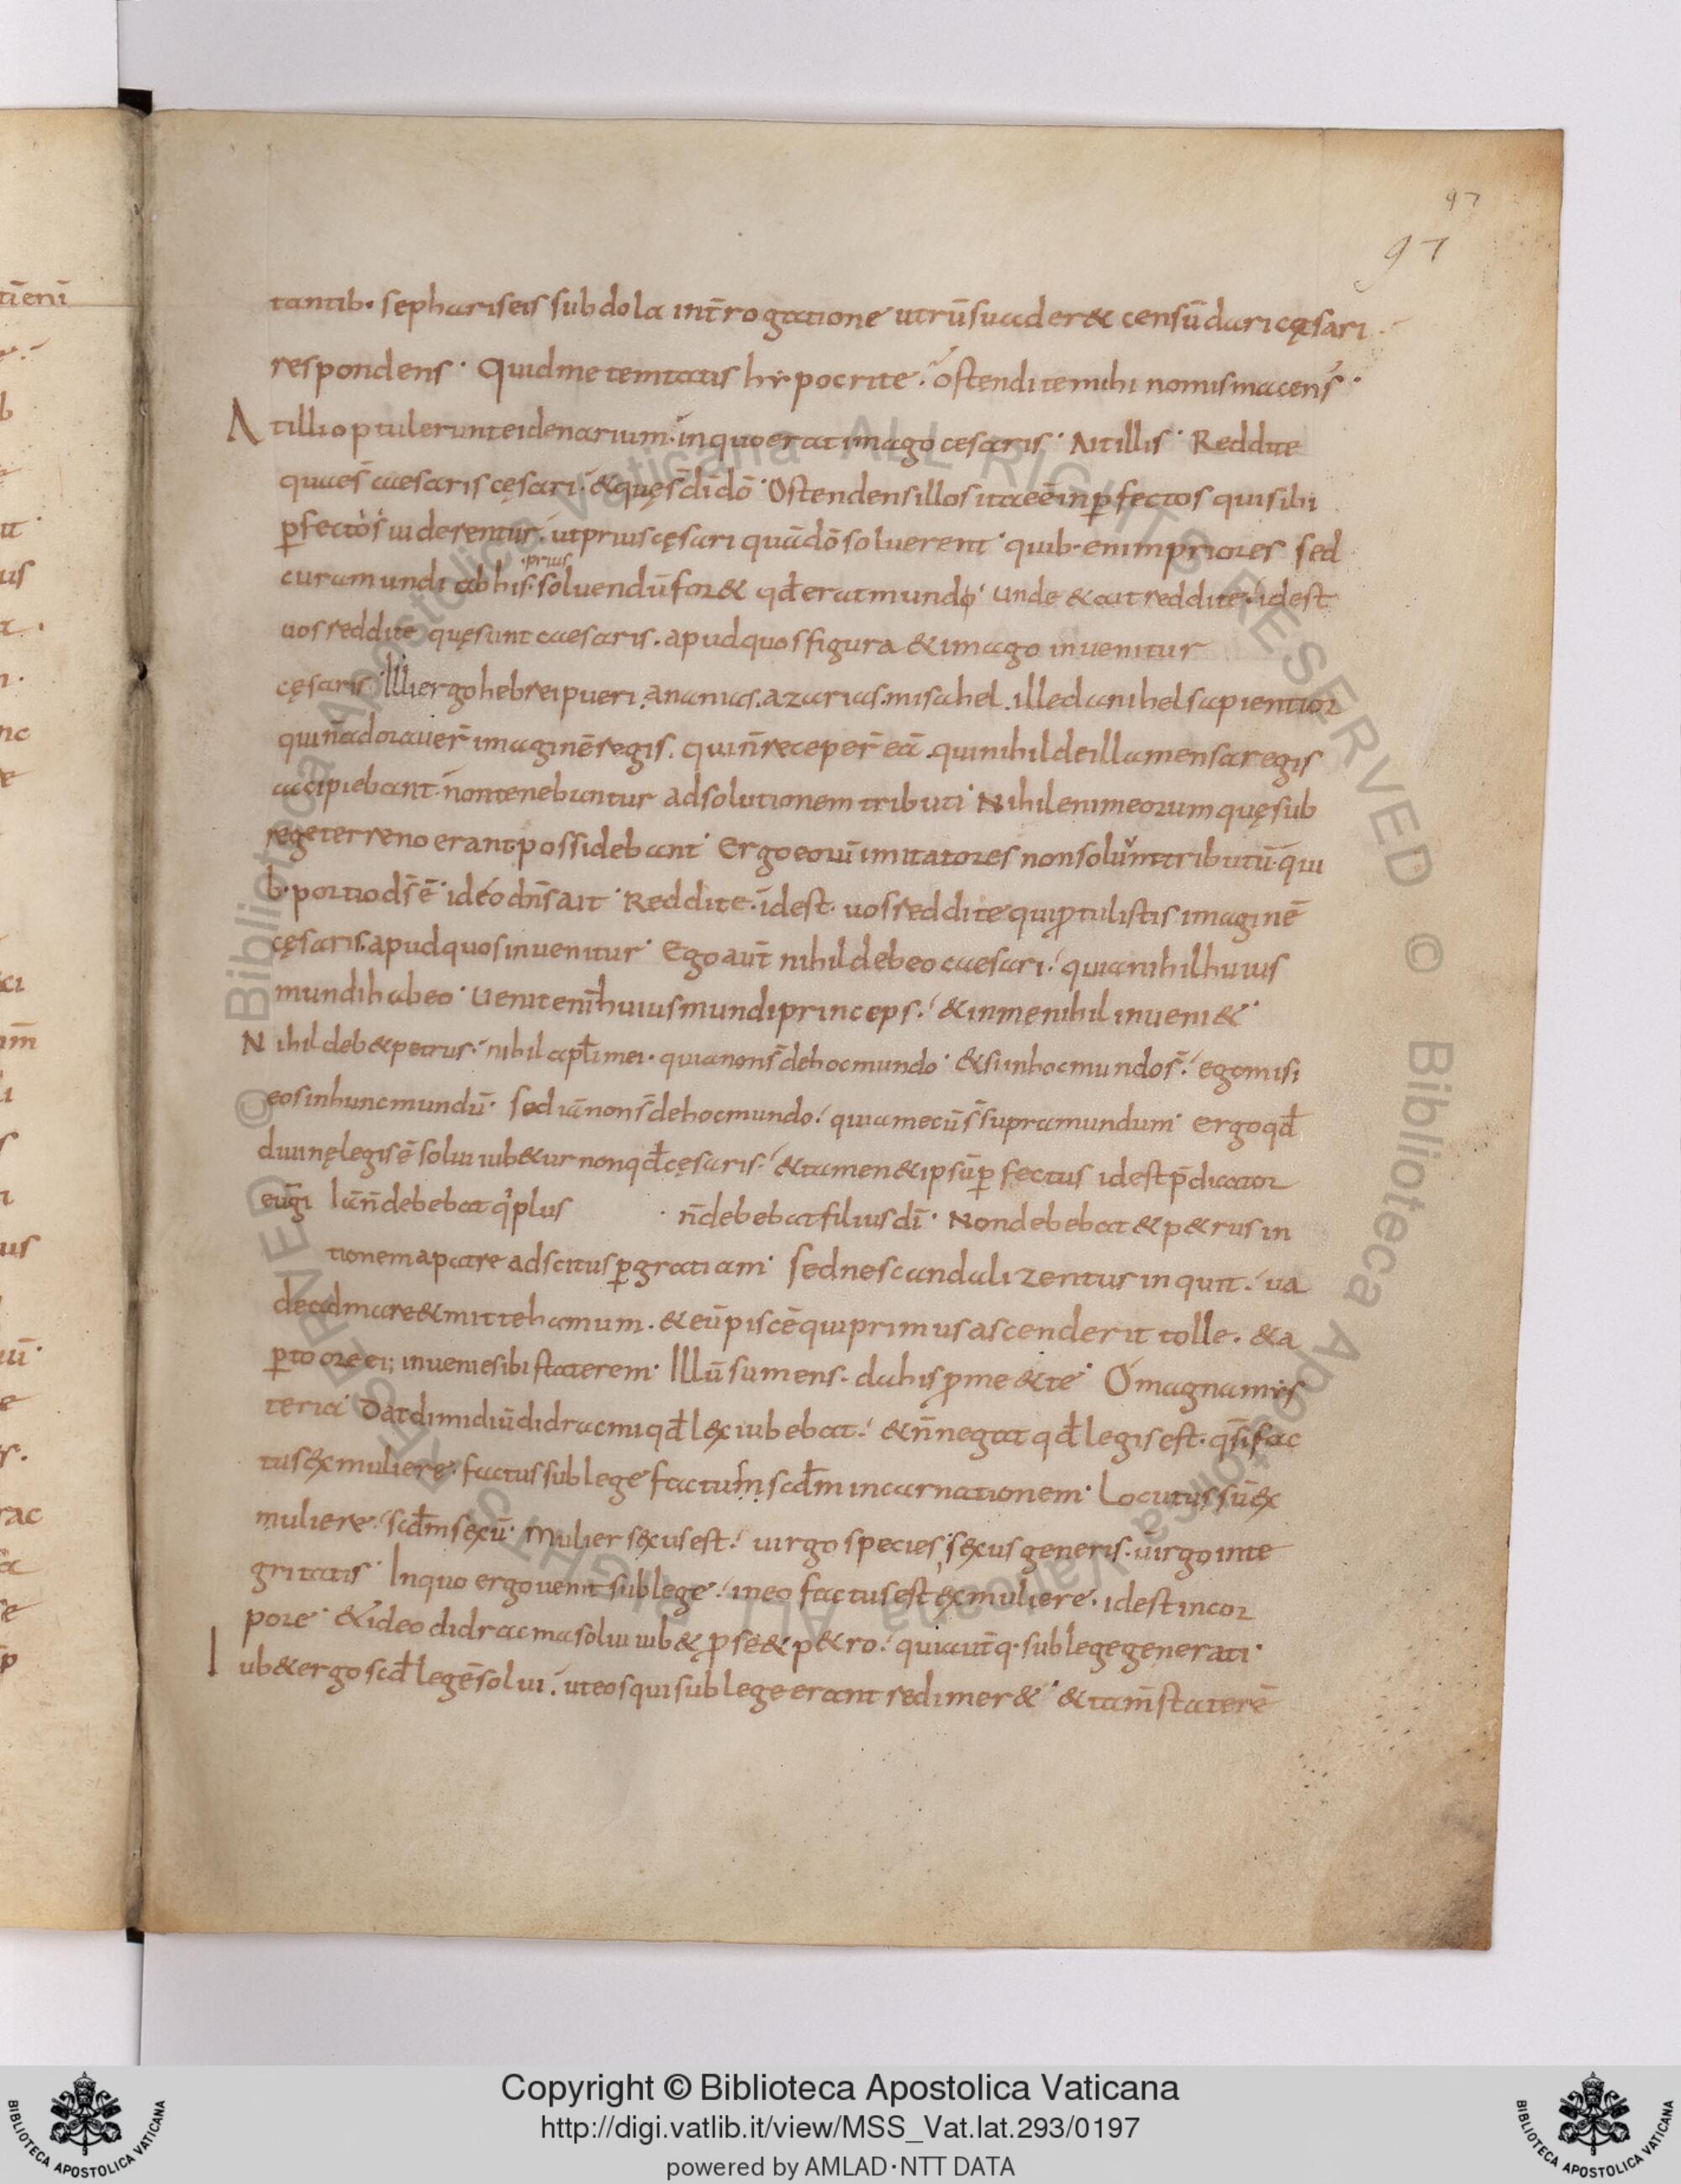 97
97
tantib· se phariseis subdola int̄rogatione utrū suader& censū dari cęsari
respondens · Quid me temtatis hypocrite · ostendite mihi nomisma cens̄ ·
At illi optulerunt ei denarium · in quo erat imago cesaris · At illis · Reddite
quaes̄ caesaris cęsari · & quęs̄ dī dō · Ostendens illos ita eē inp̄fectos qui sibi
p̄fectos uiderentur · ut prius cęsari quā dō soluerent · quib· enim priores sed
·prius
cura mundi ab his · soluendū for& qđ erat mundo · unde & ait reddite · idest
uos reddite quę sunt caesaris · apud quos figura & imago inuenitur
cęsaris · Illi ergo hebrei pueri · ananias · azarias · misahel · ille danihel sapientior
qui n̄ adorauer̄ imaginē regis · qui n̄ receper̄ eā · qui nihil de illa mensa regis
accipiebant · non tenebuntur ad solutionem tributi · Nihil enim eorum quę sub
rege terreno erant possidebant · Ergo eorū imitatores non soluunt tributū · qui
b· portio ds̄ ē · ideo dn̄s ait · Reddite · idest · uos reddite qui p̄tulistis imaginē
cęsaris · apud quos inuenitur · Ego aut̄ nihil debeo caesari · quia nihil huius
mundi habeo · Uenit enī huius mundi princeps · & in me nihil inueni& ·
Nihil deb& petrus · nihil apłi mei · quia non s̄ de hoc mundo · & si in hoc mundo s̄ · ego misi
eos in hunc mundū · sed iā non s̄ de hoc mundo · quia mecū s̄ supra mundum · Ergo qđ
diuinę legis ē solui iub&ur non qđ cęsaris · & tamen & ipsū p̄fectus idest p̄dicator
eūgi iā n̄ debebat q̇ plus · n̄ debebat filius dī · Non debebat & p&rus in
tionem a patre adscitus p̄ gratiam · sed ne scandalizentur inquit · ua
de ad mare & mitte hamum · & eū piscē qui primus ascenderit tolle · & a
p̄to ore ei; inuenies ibi staterem · Illū sumens · da his p̄ me & te · O magna mys
teria · Dat dimidiū didracmi qđ lex iubebat · & n̄ negat qđ legis est · q̄si fac
tus ex muliere · factus sub lege factum scđm incarnationem · Locutus sū ex
muliere · scđm sexū · Mulier sexus est · uirgo species · sexus generis · uirgo inte
gritatis · In quo ergo uenit sub lege · in eo factus est ex muliere · idest in cor
pore · & ideo didracma solui iub& p̄ se & p&ro · quia ut̄q· sub lege generati ·
Iub& ergo scđ legē solui · ut eos qui sub lege erant redimer& · & tam̄ staterē
Copyright © Biblioteca Apostolica Vaticana
http://digi.vatlib.it/view/MSS_Vat.lat.293/0197
powered by AMLAD·NTT DATA